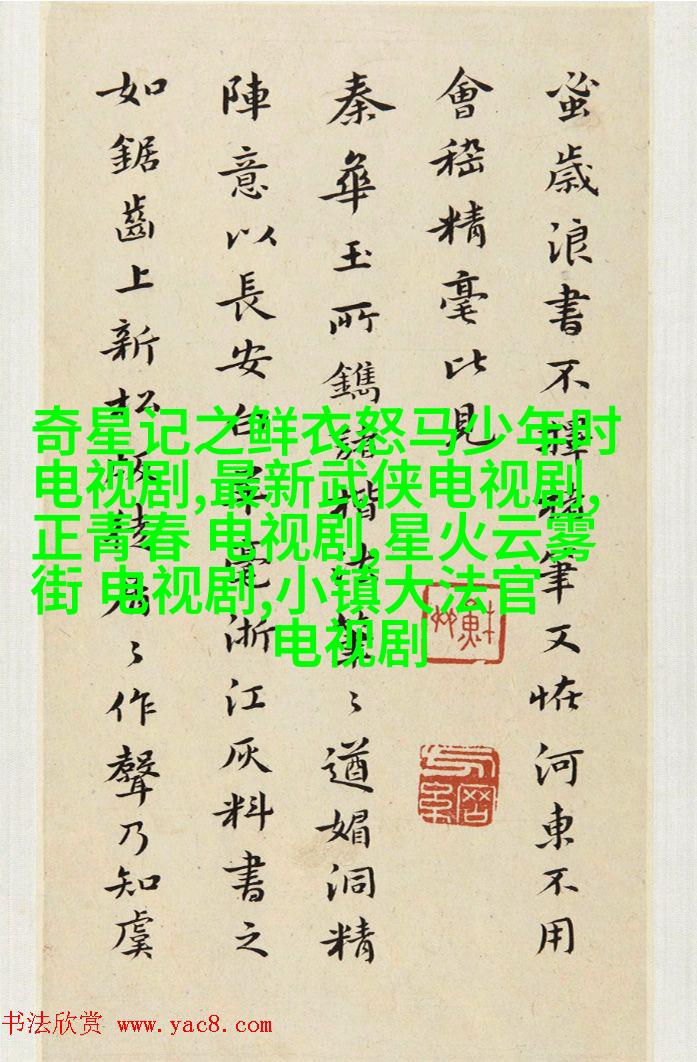 蚤歲浪書不擇筆又恠河東不用
會稽精毫比見
秦華玉所鐫諸楷法筆〻遒媚洞精
陣意以長安白羊毫浙江灰料書之
如鋸齒上新松〻作聲乃知虞
奇星记之鲜衣怒马少年时
电视剧,最新武侠电视剧,
正青春 电视剧,星火云雾
街 电视剧,小镇大法官
电视剧
书法欣赏 www.yac8.com